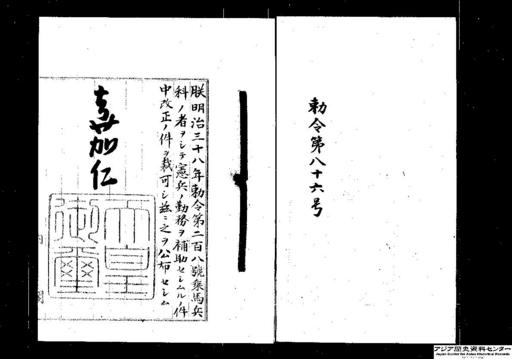 勅令第八十六号
朕明治三十八年勅令第二百八號乗馬兵
科ノ者ヲシテ憲兵ノ勤務ヲ補助セシムルノ件
中改正ノ件ヲ裁可シ茲ニ之ヲ公布セシム
嘉仁
天皇
御璽
アジア歴史資料センター
Japan Center for Asian Historical Records